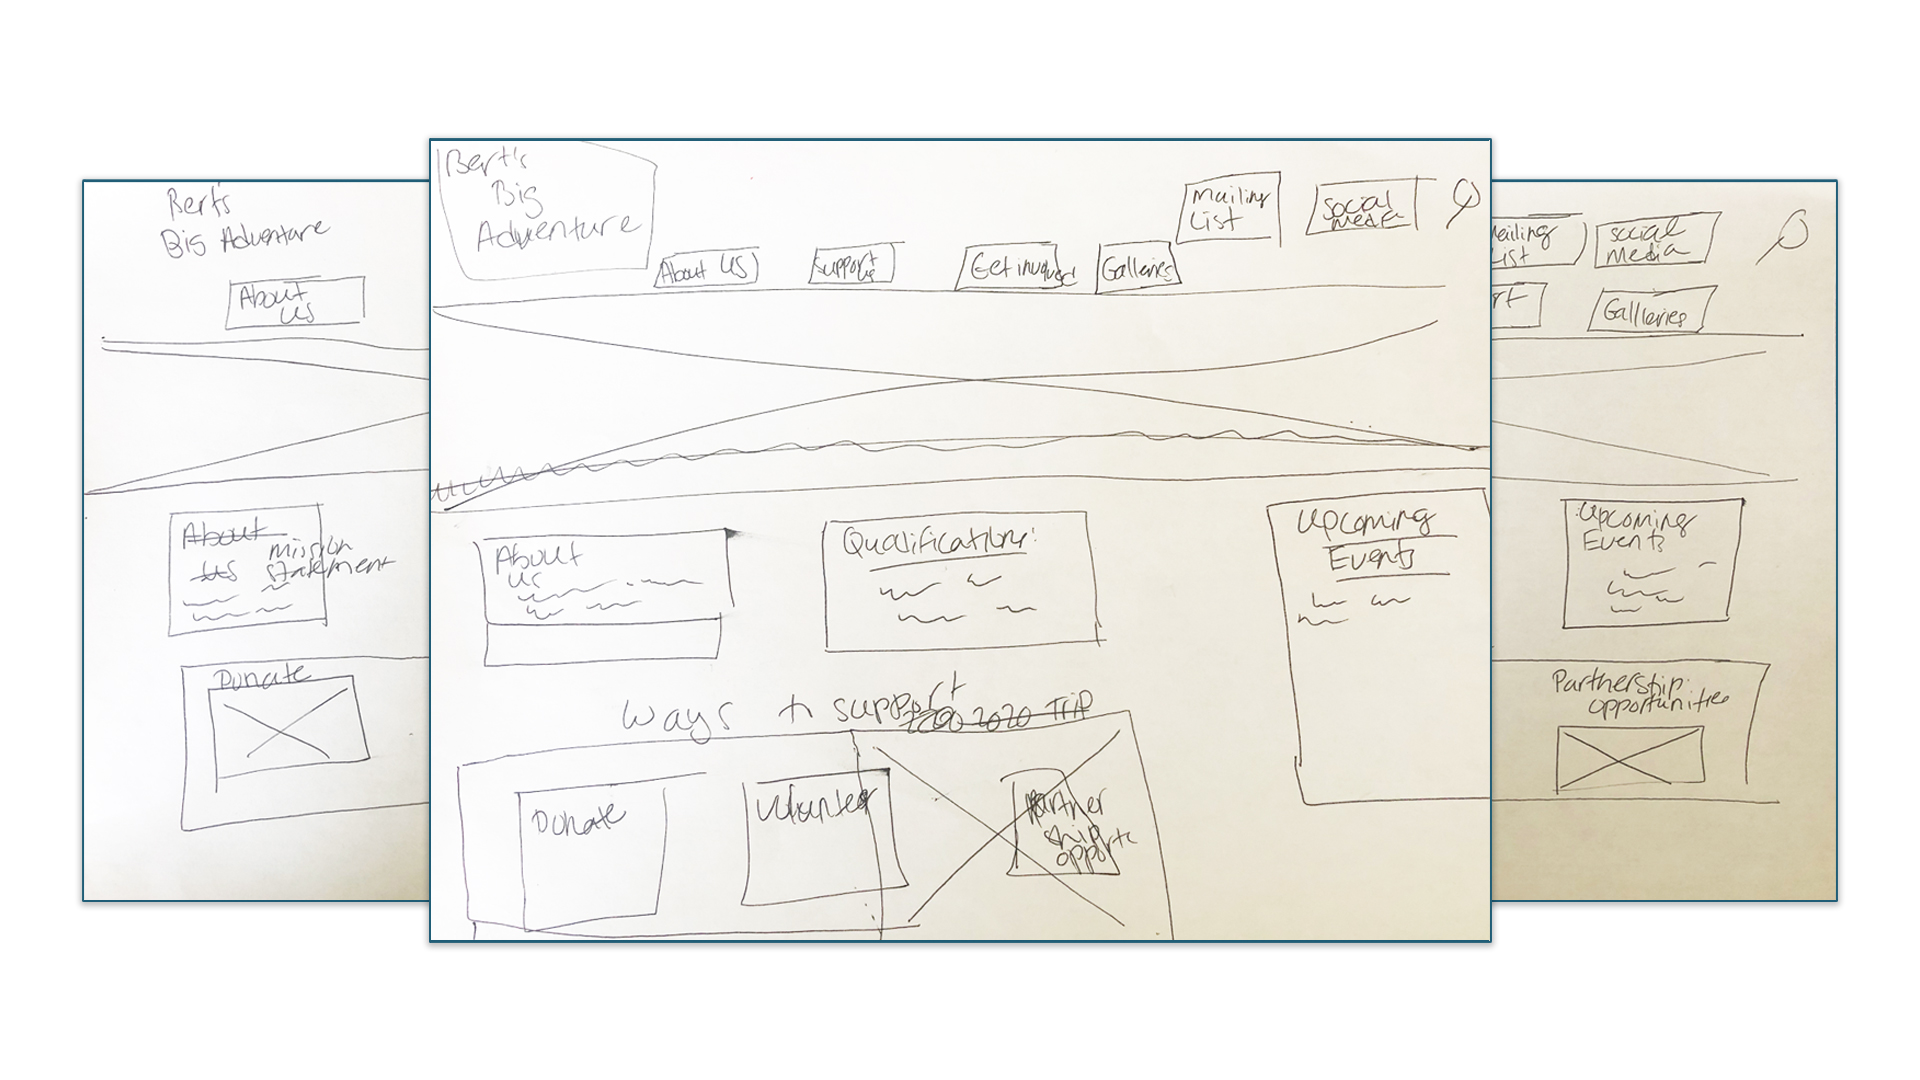 Bert's
Big Adventure
About
Us
About
Us
mission
statement
Donate
Bert's
Big
Adventure
Mailing
List
Social
Media
About US
Support
us
Get involved
Galleries
About
us
Qualifications:
Upcoming
Events
ways to support
2020 TRIP
Donate
Volunteer
Partner
ship
opport
List
Social
Media
rt
Galleries
Upcoming
Events
Partnership
opportunities